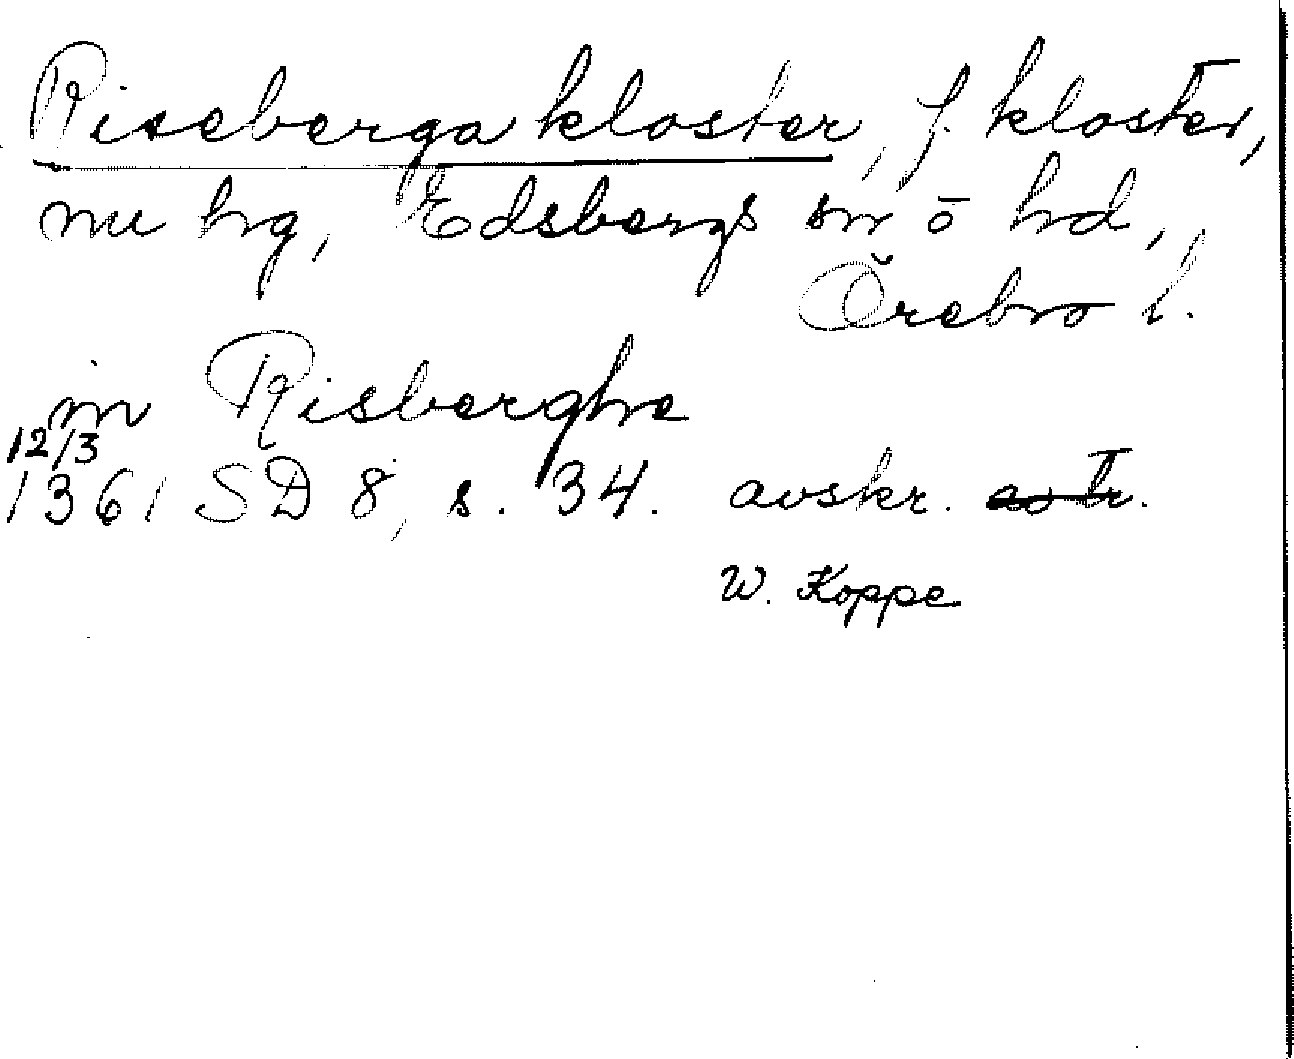 Riseberga kloster, f. kloster,
nu hrg, Edsbergs sn o hd,
Örebro l.
in Risberghe
12/3
1361 SD 8, s. 34. avskr. av tr.
W. Koppe